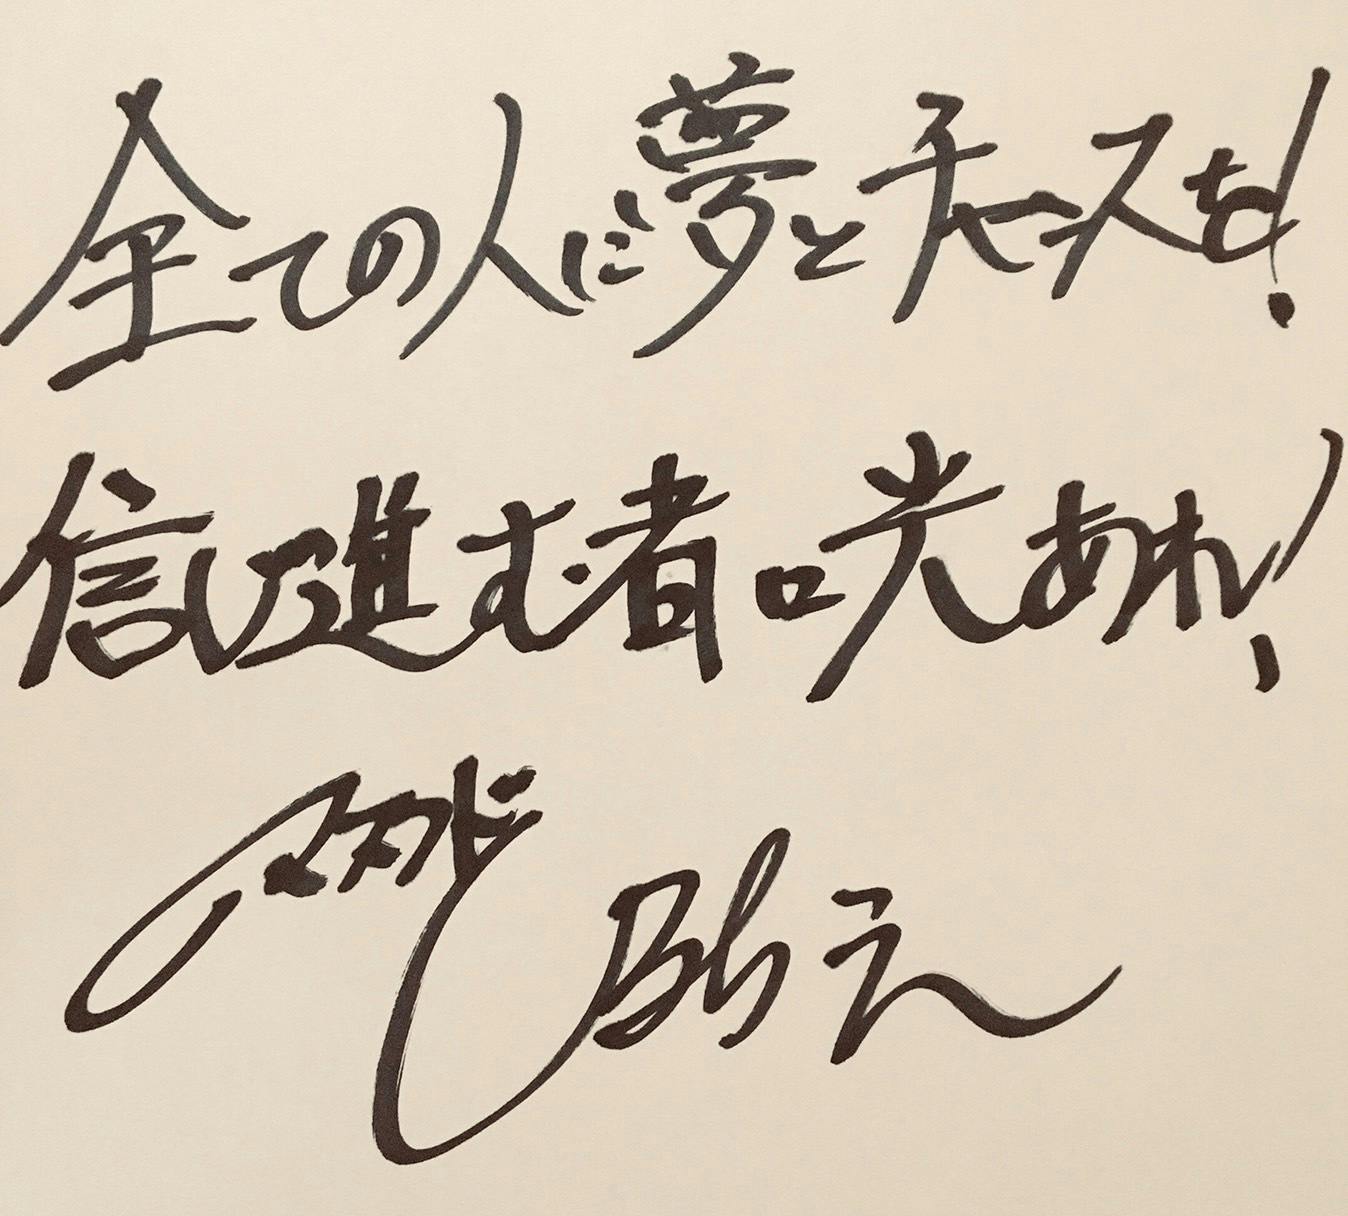 全ての人に夢とチャンスを!
信じ進む者に光あれ!